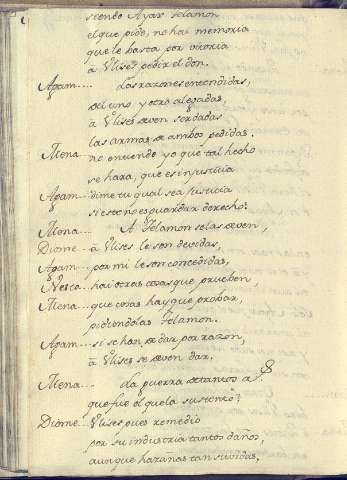 siendo Ayax Telamon
el que pide, no hai memoria
que le basta por vitoria
à Vlises pedir el don.
Agam.... Las razones entendidas,
del uno y otro alegadas
à Vlises deven ser dadas
las armas de ambos pedidas.
Mena.. no entiende yo que tal hecho
se hara, que es injusticia
Agam... dime tu qual sea justicia
si esto no es guardar derecho?
Mena... A Telamon se las deven,
Diome... à Vlises le son devidas,
Agam... por mi le son concedidas,
Nesto... hai otras cosas que prueben,
Mena... que cosas hay que probar,
pidiendolas Telamon.
Agam... si se han de dar por razon,
à Vlises se deven dar.
Mena... La guerra de tantos as
que fue el que la sustento?
Diome... Vlises pues remedio
por su industria tantos daños,
aunque hazañas tan subidas,